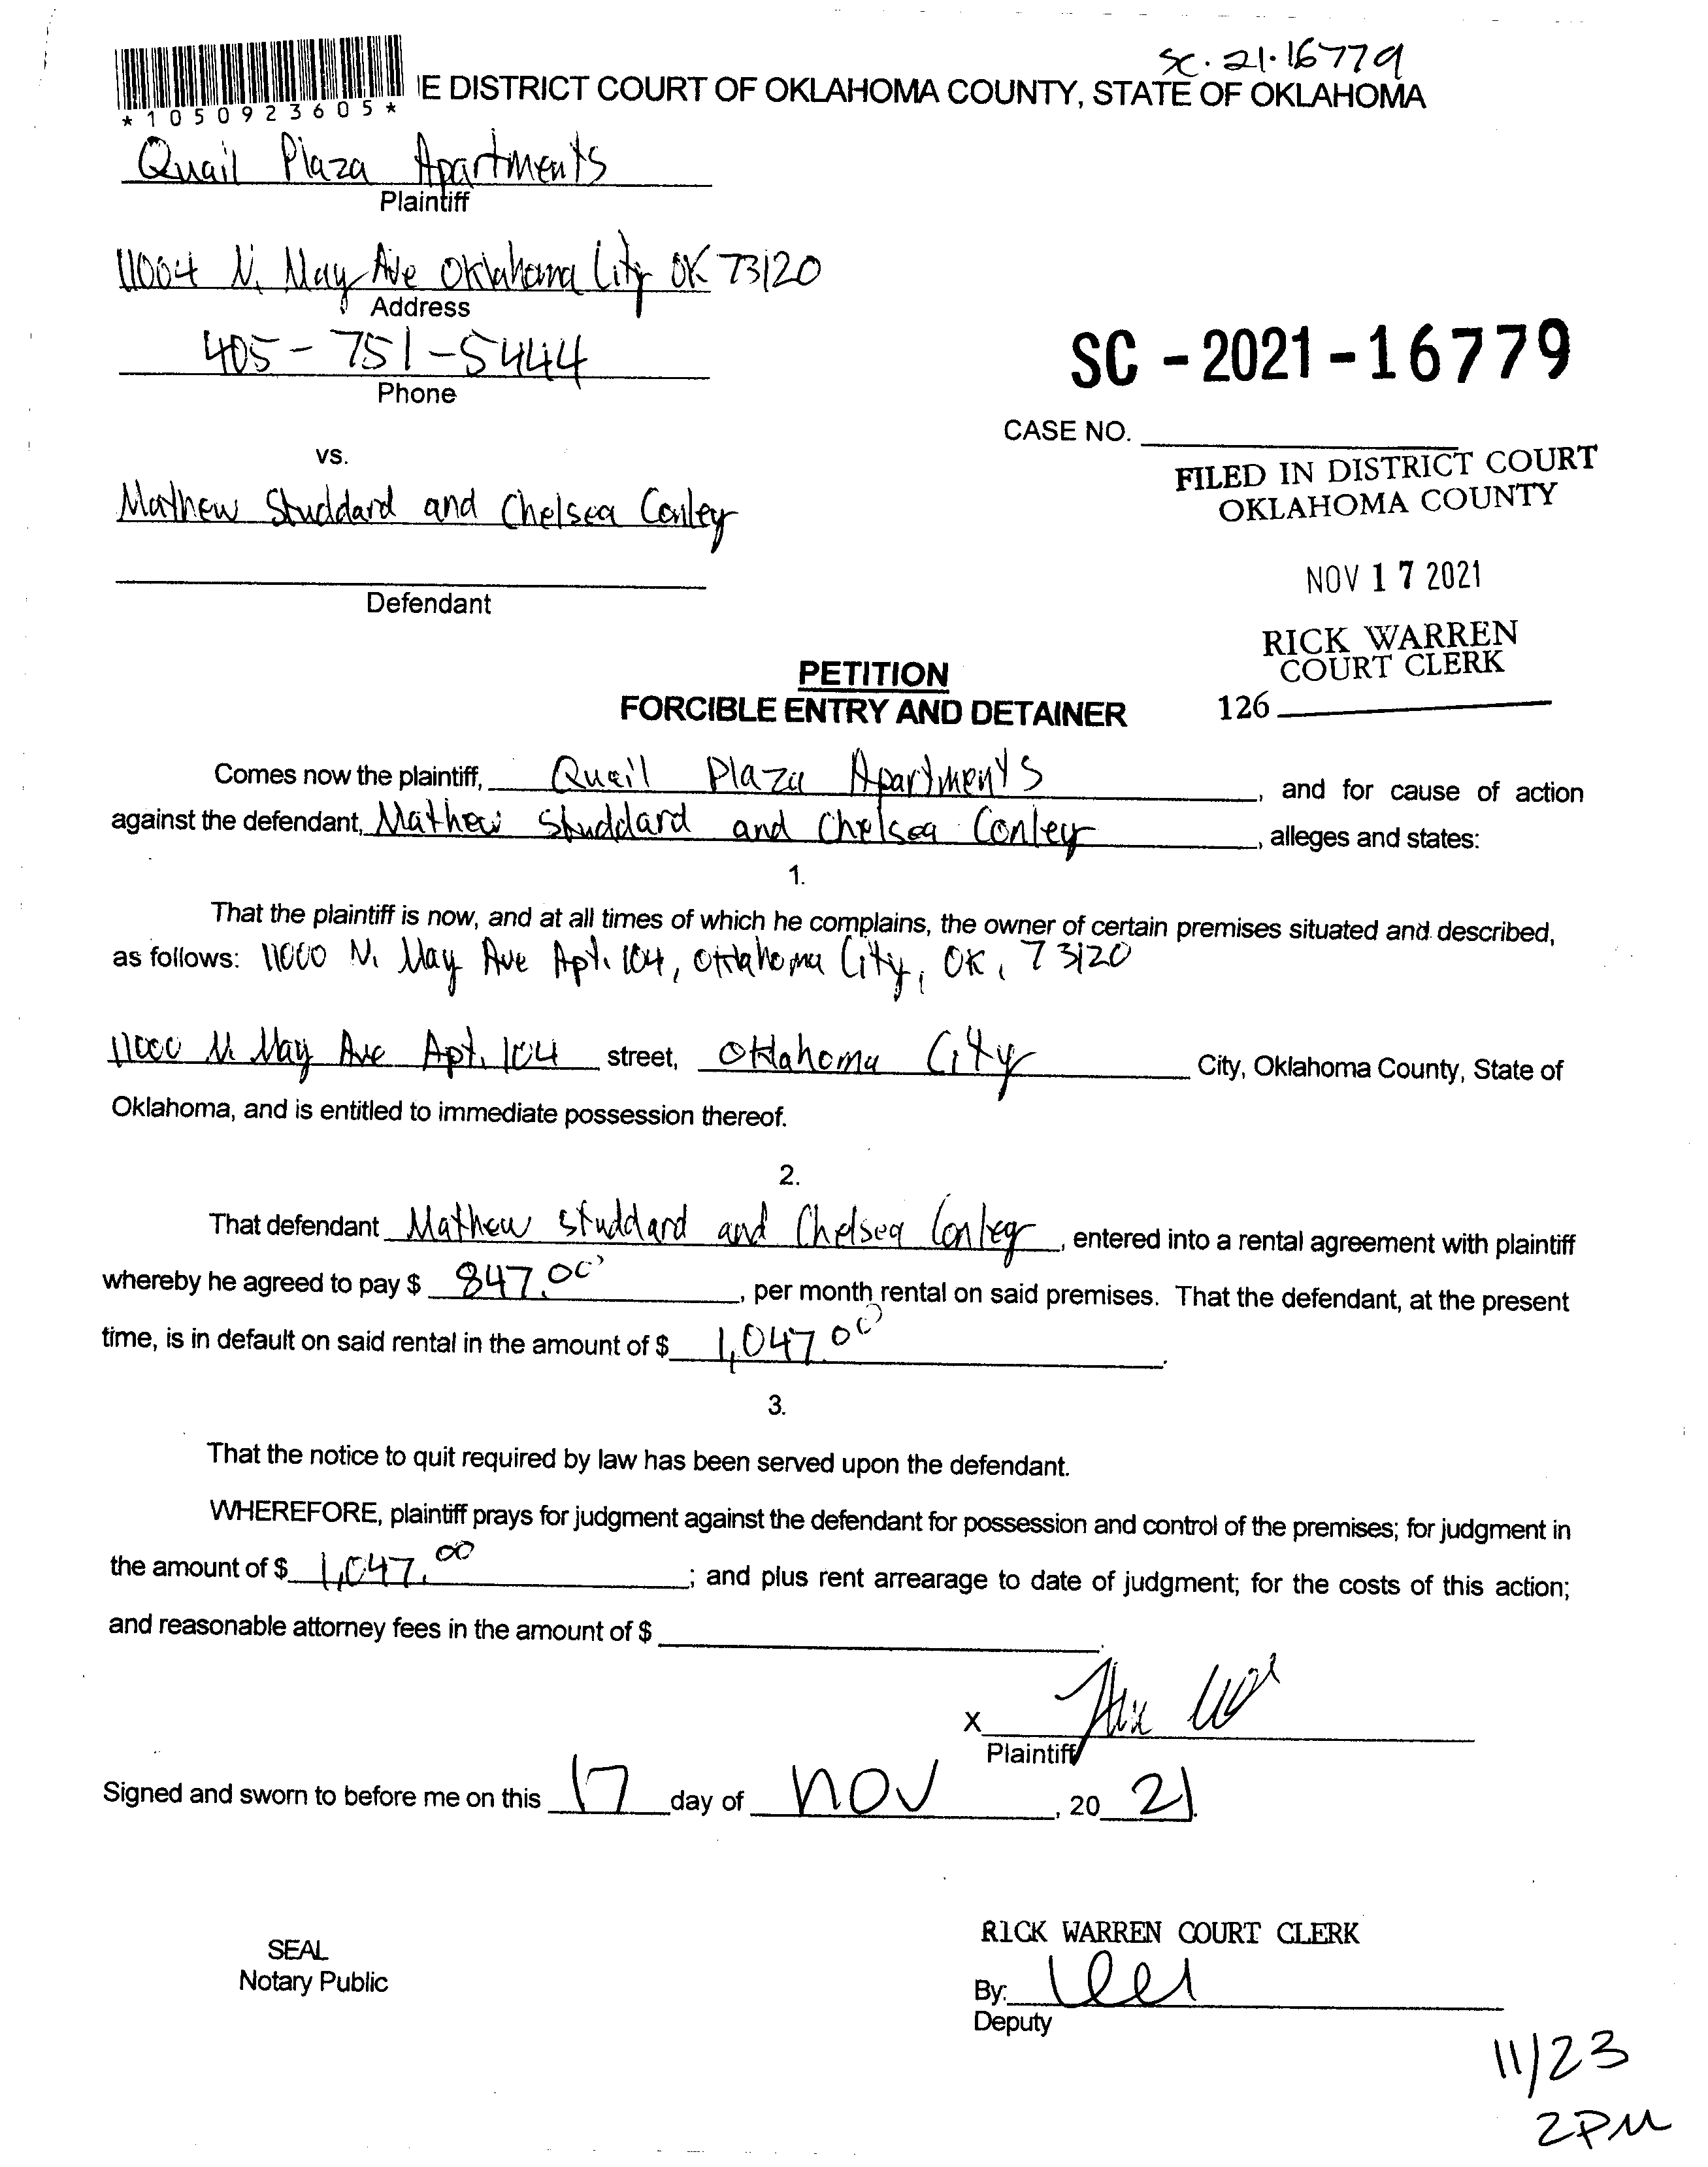 SC-21-16779
E DISTRICT COURT OF OKLAHOMA COUNTY, STATE OF OKLAHOMA
*1050923605*
Quail Plaza Apartments
Plaintiff
11004 N. May Ave Oklahoma City OK 73120
Address
405-751-5444
Phone
SC-2021-16779
CASE NO.
vs.
FILED IN DISTRICT COURT
OKLAHOMA COUNTY
Mathew Studdard and Chelsea Conley
NOV 17 2021
Defendant
RICK WARREN
COURT CLERK
126
PETITION
FORCIBLE ENTRY AND DETAINER
Comes now the plaintiff, Quail Plaza Apartments, and for cause of action
against the defendant, Mathew Studdard and Chelsea Conley, alleges and states:
1.
That the plaintiff is now, and at all times of which he complains, the owner of certain premises situated and described,
as follows: 11000 N. May Ave Apt. 104, Oklahoma City, OK, 73120
11000 N. May Ave Apt. 104 street, Oklahoma City City, Oklahoma County, State of
Oklahoma, and is entitled to immediate possession thereof.
2.
That defendant Mathew Studdard and Chelsea Conley, entered into a rental agreement with plaintiff
whereby he agreed to pay $ 847.00, per month rental on said premises. That the defendant, at the present
time, is in default on said rental in the amount of $ 1,047.00.
3.
That the notice to quit required by law has been served upon the defendant.
WHEREFORE, plaintiff prays for judgment against the defendant for possession and control of the premises; for judgment in
the amount of $ 1,047.00; and plus rent arrearage to date of judgment; for the costs of this action;
and reasonable attorney fees in the amount of $ .
X
Plaintiff
Signed and sworn to before me on this 17 day of NOV, 20 21.
SEAL
Notary Public
RICK WARREN COURT CLERK
By:
Deputy
11/23
2PM